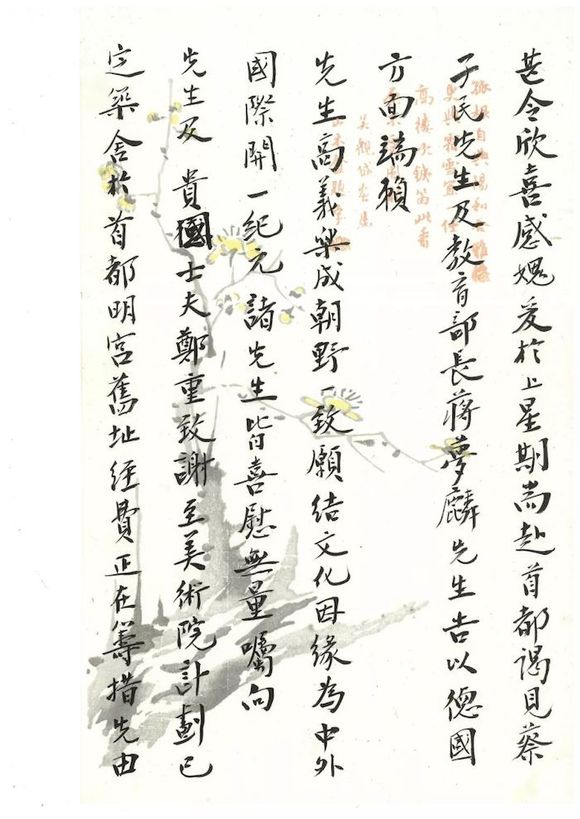 甚令欣喜感媿爰於上星期耑赴首都谒見蔡
孑民先生及教育部長蔣夢麟先生告以德國
方面端賴
先生高義樂成朝野一致願結文化因緣為中外
國際開一紀元諸先生皆喜慰無量囑向
先生及貴國士夫鄭重致謝至美術院計劃已
定築舍於首都明宮舊址經費正在籌措先由